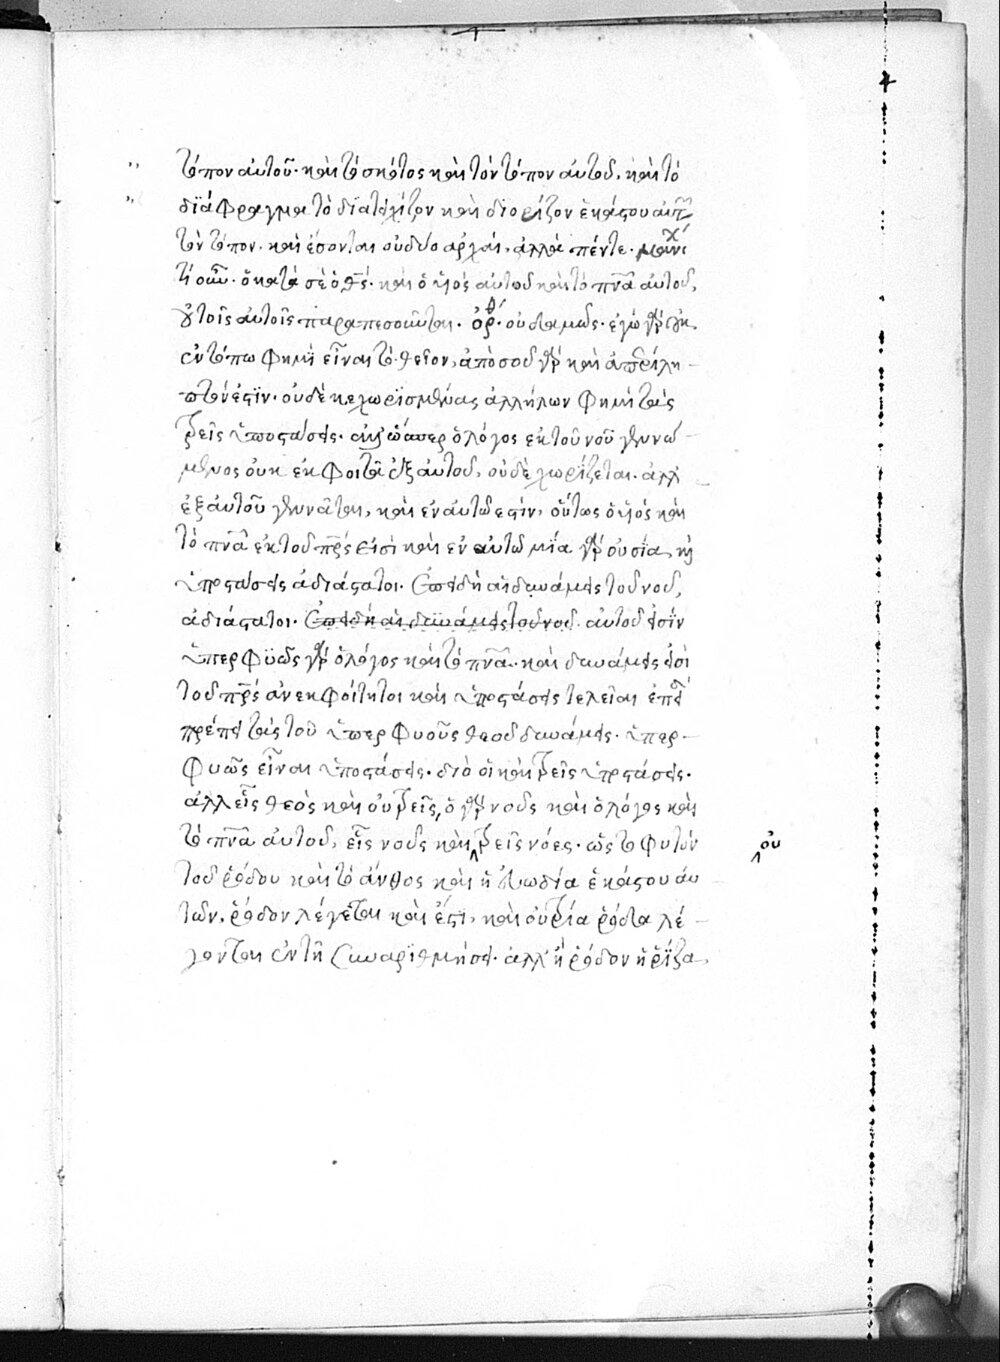 τόπον αυτοῦ· καὶ τὸ σκότος καὶ τὸν τόπον αὐτοῦ, καὶ τὸ
διάφραγμα τὸ διατειχίζον καὶ διορίζον ἑκάστου αὐτῶν
τὸν τόπον. καὶ ἔσονται οὐ δύο ἀρχαὶ, ἀλλὰ πέντε. μανιχ
τί οὖν. ὁ κατὰ σὲ ὁ θς. καὶ ὁ υἱὸς αὐτοῦ καὶ τὸ πνα αὐτοῦ,
τοῖς αὐτοῖς παραπεσοῦνται. ὀρθ. οὐδαμῶς. ἐγὼ γὰρ οὐκ
ἐν τόπω φημὶ εἶναι τὸ θεῖον, ἄποσον γὰρ καὶ ἀπερίλη-
πτόν ἐστιν. οὐδὲ κεχωρισμένας ἀλλήλων φημὶ τὰς
τρεῖς ὑποστάσεις. ὥσπερ ὁ λόγος ἐκ τοῦ νοῦ γεννώ-
μενος οὐκ ἐκφοιτᾶ ἐξ αὐτοῦ, οὐδὲ χωρίζεται. ἀλλ
ἐξ αὐτοῦ γεννᾶται, καὶ ἐν αὐτῶ ἐστίν, οὕτως ὁ υἱὸς καὶ
τὸ πνα ἐκ τοῦ πρς εἰσὶ καὶ ἐν αὐτῶ μία γὰρ οὐσία, καὶ
ὑποστάσεις ἀδιάστατοι. ἐπειδὴ αἱ δυνάμεις τοῦ νοῦ,
ἀδιάστατοι. ἐπειδὴ αἱ δυνάμεις τοῦ νοῦ. αὐτοῦ εἰσίν
ὑπερφυῶς γὰρ ὁ λόγος καὶ τὸ πνα. καὶ δυνάμεις εἰσὶ
τοῦ πρς ἀνεκφοίτητοι καὶ ὑποστάσεις τέλειαι ἐπεὶ
πρέπει τὰς τοῦ ὑπερφυοῦς θεοῦ δυνάμεις. ὑπερ-
φυῶς εἶναι ὑποστάσεις. διὸ εἰ καὶ τρεῖς ὑποστάσεις.
ἀλλ εἷς θεὸς καὶ οὐ τρεῖς, ὁ γὰρ νοῦς καὶ ὁ λόγος καὶ
τὸ πνα αὐτοῦ, εἷς νοῦς καὶ οὐ τρεῖς νόες. ὡς τὸ φυτὸν
τοῦ ῥόδου καὶ τὸ ἄνθος καὶ ἡ εὐωδία ἑκάστου αὐ
τῶν, ῥόδον λέγεται καὶ ἔστι, καὶ οὐ τρία ῥόδα λέ-
γονται ἐν τῆ συναριθμήσει. ἀλλ ἢ ῥόδον ἢ ῥίζα,